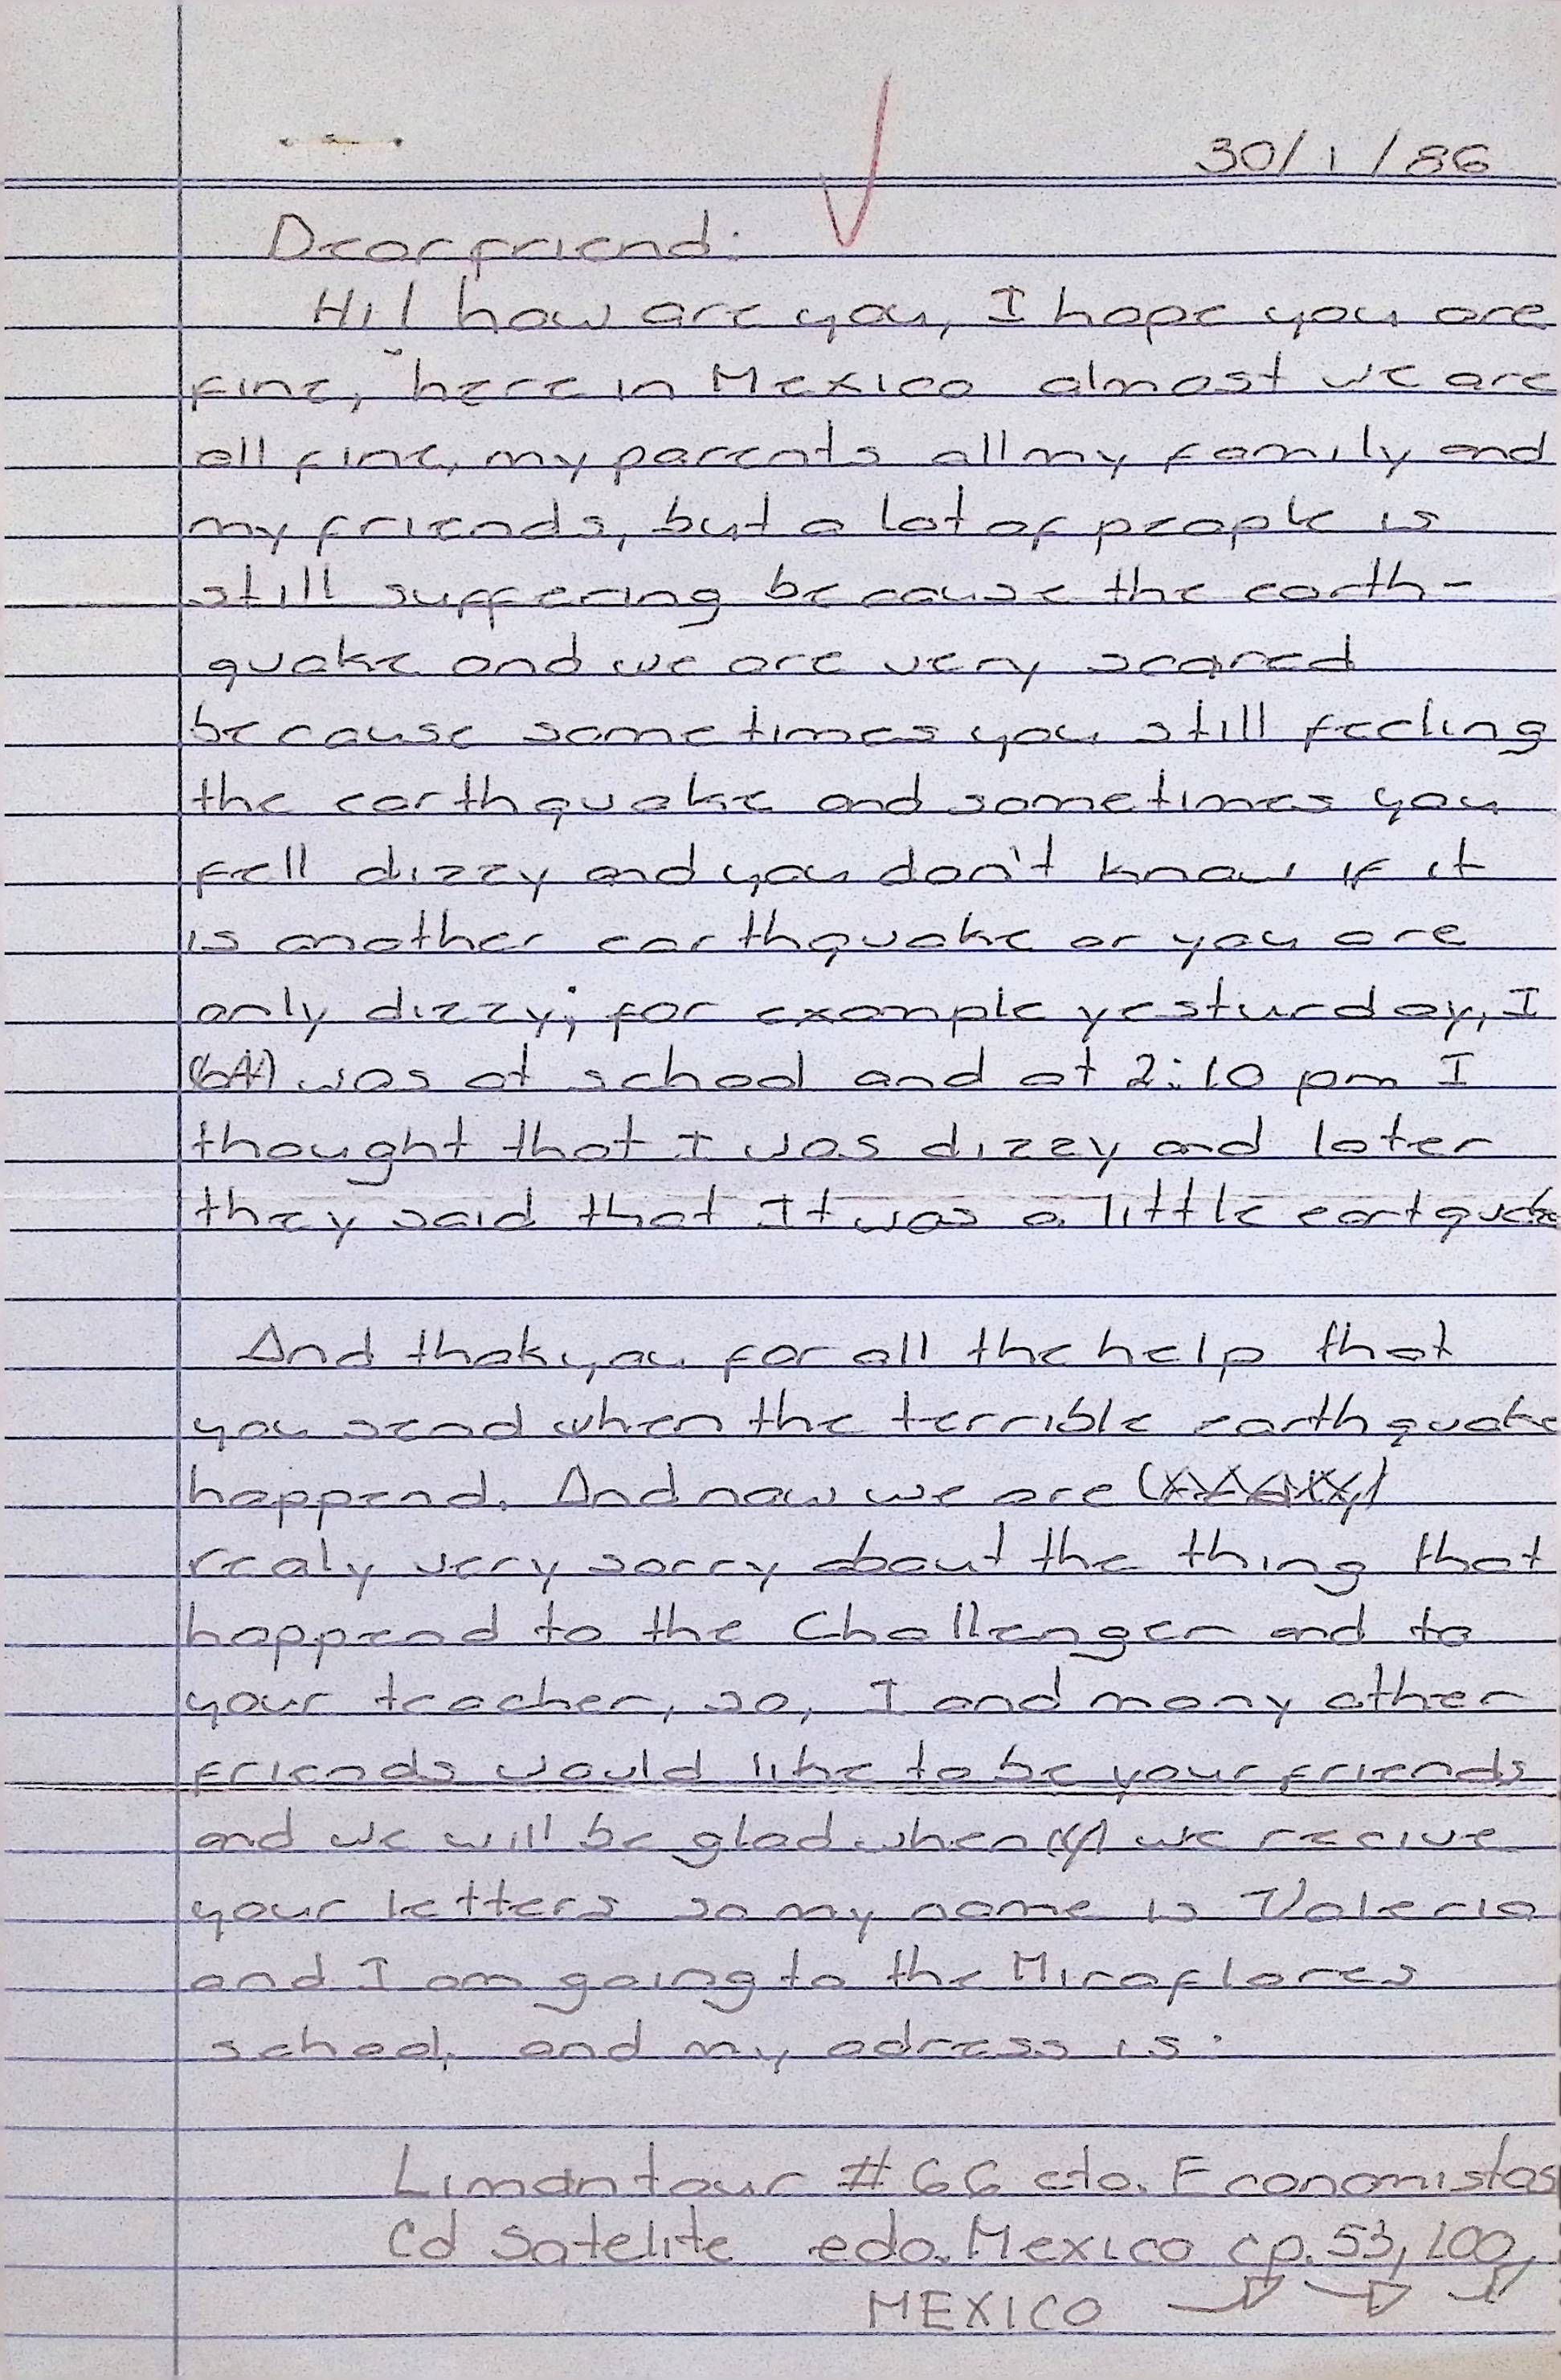 30/1/86
Dear friend:
Hi! how are you, I hope you are
fine, here in Mexico almost we are
all fine, my parents all my family and
my friends, but a lot of people is
still suffering because the earth-
quake and we are very scared
because sometimes you still feeling
the earthquake and sometimes you
fell dizzy and you don't know if it
is another earthquake or you are
only dizzy; for example yesturday, I
was at school and at 2:10 pm I
thought that I was dizzy and later
they said that It was a little eartquake
And thak you for all the help that
you send when the terrible earthquake
happend. And now we are
realy very sorry about the thing that
happend to the Challenger and to
your teacher, so, I and many other
friends would like to be your friends
and we will be glad when we recive
your letters so my name is Valeria
and I am going to the Miraflores
school, and my adress is:
Limantour #66 cto. Economistas
Cd Satelite edo. Mexico cp. 53,100,
MEXICO